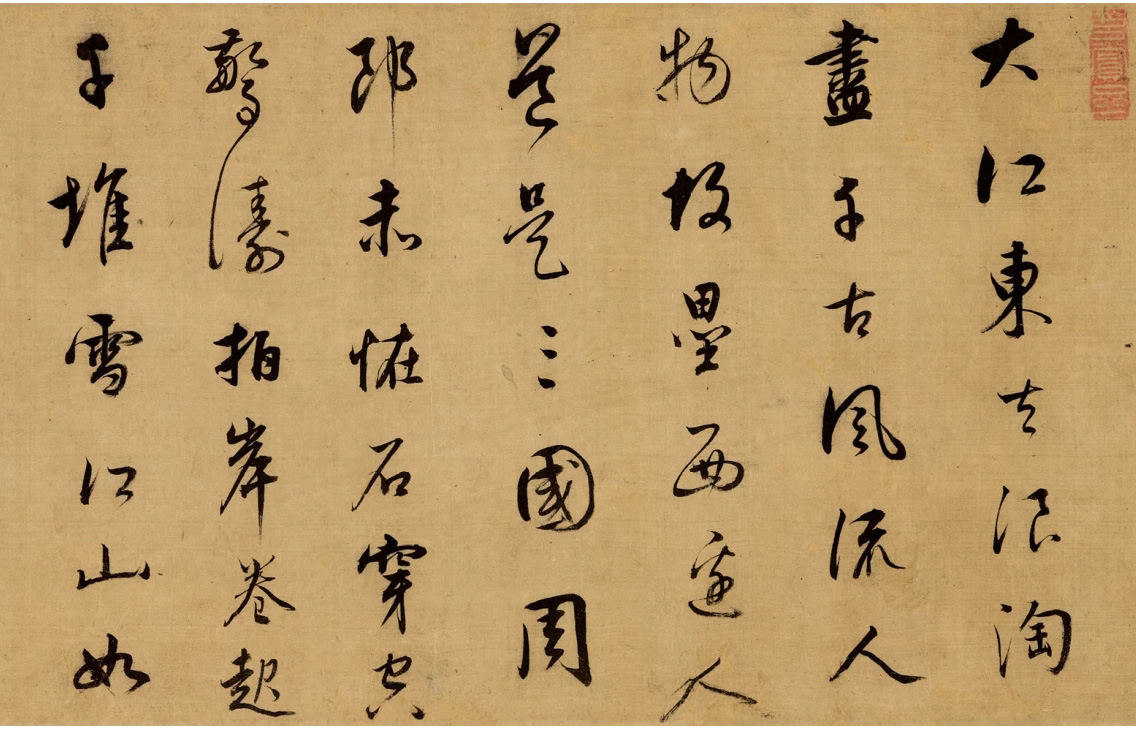 大江東去浪淘
盡千古風流人
物故壘西邊人
道是三國周
郎赤恠石穿空
驚濤拍岸卷起
千堆雪江山如